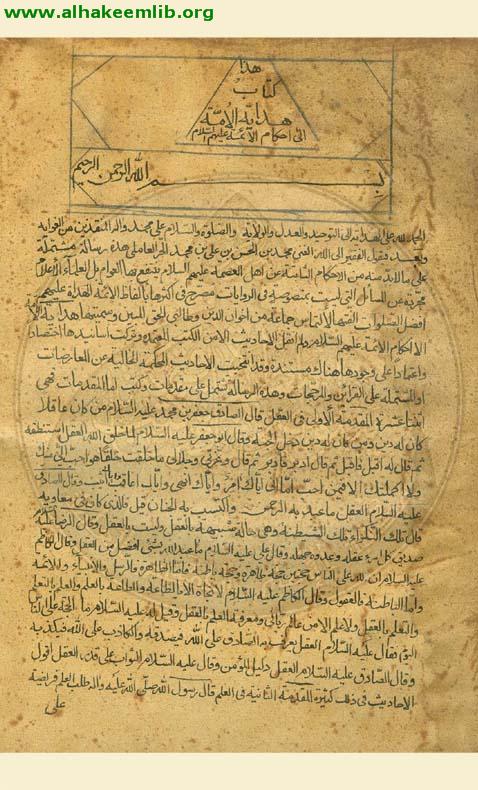 www.alhakeemlib.org
هذا
كتاب
هداية الأمة
الى احكام الأئمة عليهم السلام
بسم الله الرحمن الرحيم
الحمد لله على الهداية الى التوحيد والعدل والولاية والصلوة والسلام على محمد وآله المنقذين من الغواية
وبعد فيقول الفقير الى الله الغنى محمد بن الحسن بن على بن محمد الحر العاملى هذه رسالة مشتملة
على ما لابد منه من الاحكام الثابتة عن اهل العصمة عليهم السلام ينتفع بها العوام بل العلماء الأعلام
مجردة عن المسائل التى ليست بمنصوصة فى الروايات مصرح فى اكثرها بألفاظ الأئمة الهداة عليهم
افضل الصلوات الفتها لالتماس جماعة من اخوان الدين وطالبى الحق المبين وسميتها هداية الأمة
الى احكام الأئمة عليهم السلام ولم انقل الأحاديث الا من الكتب المعتمدة وتركت اسانيدها اختصارا
واعتمادا على وجودها هناك مسندة وقد انتخبت الأحاديث المحكمة الخالية عن المعارضات
او المشتملة على القرائن والمرجحات وهذه الرسالة تشتمل على مقدمات وكتب اما المقدمات فهى
اثنا عشرة المقدمة الأولى فى العقل قال الصادق جعفر بن محمد عليه السلام من كان عاقلا
كان له دين ومن كان له دين دخل الجنة وقال ابو جعفر عليه السلام لما خلق الله العقل استنطقه
ثم قال له اقبل فاقبل ثم قال ادبر فادبر ثم قال وعزتى وجلالى ما خلقت خلقا هو احب الى منك
ولا اكملتك الا فيمن احب اما انى اياك آمر واياك انهى واياك اعاقب واياك اثيب وقال الصادق
عليه السلام العقل ما عبد به الرحمن واكتسب به الجنان قيل فالذى كان فى معاوية
قال تلك النكراء تلك الشيطنة وهى شبيهة بالعقل وليست بالعقل وقال الرضا عليه السلام
صديق كل امرء عقله وعدوه جهله وقال على عليه السلام ما عبد الله بشىء افضل من العقل وقال الكاظم
عليه السلام ان لله على الناس حجتين حجة ظاهرة وحجة باطنة فاما الظاهرة فالرسل والأنبياء والأئمة
واما الباطنة فالعقول وقال الكاظم عليه السلام لا نجاة الا بالطاعة والطاعة بالعلم والعلم بالتعلم
والتعلم بالعقل ولا علم الا من عالم ربانى ومعرفة العلم بالعقل وقيل له عليه السلام ما الحجة على الناس
اليوم فقال عليه السلام العقل يعرف به الصادق على الله فيصدقه والكاذب على الله فيكذبه
وقال الصادق عليه السلام العقل دليل المؤمن وقال عليه السلام الثواب على قدر العقل اقول
الأحاديث فى ذلك كثيرة المقدمة الثانية فى العلم قال رسول الله صلى الله عليه وآله طلب العلم فريضة
على